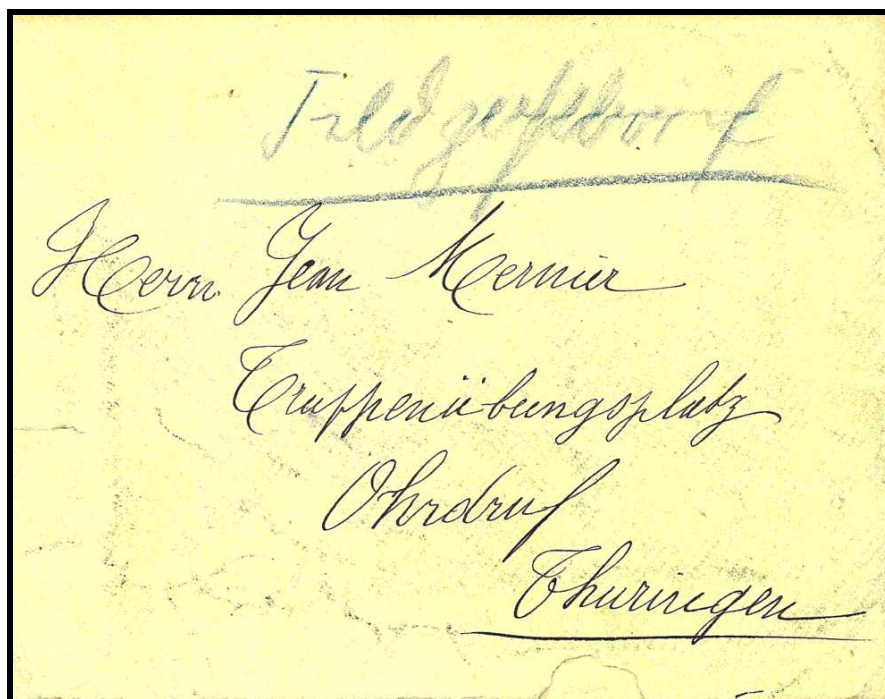 Feldpostbrief
Herrn Jean Mernier
Truppenübungsplatz
Ohrdruf
Thuringen